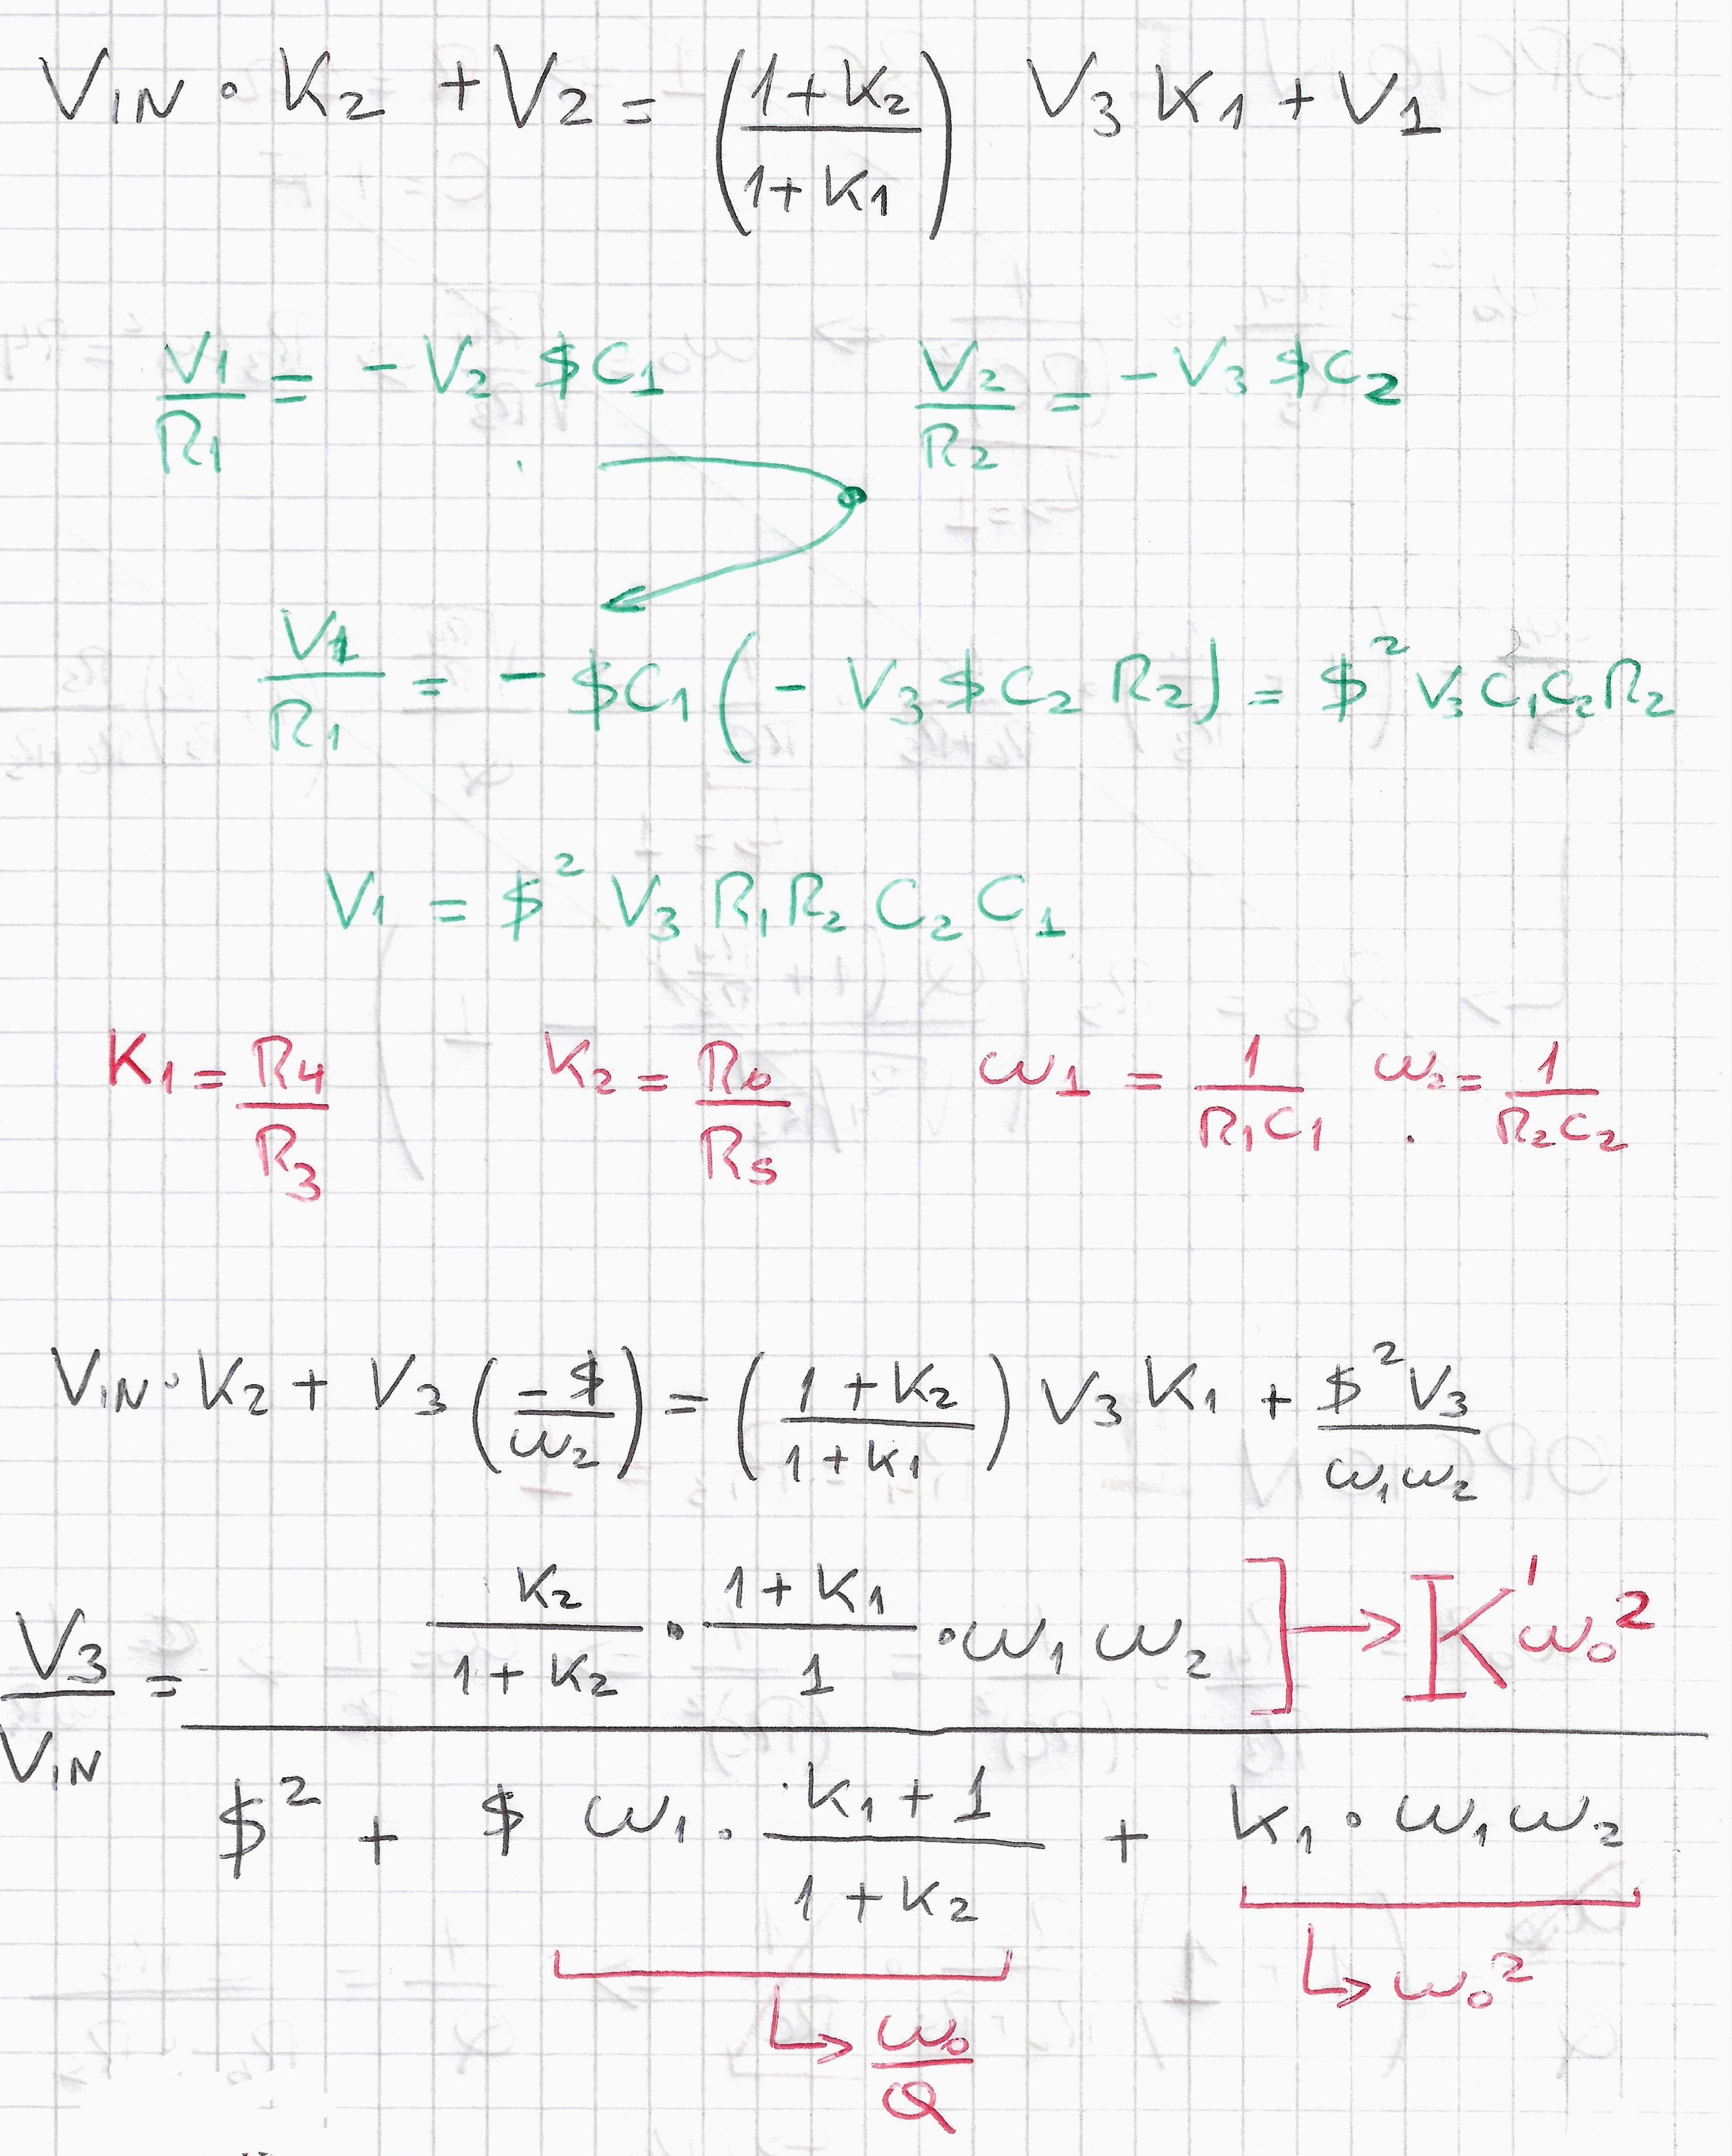 VIN · K2 + V2 = ((1+K2)/(1+K1)) V3 K1 + V1
V1/R1 = - V2 $C1    V2/R2 = - V3 $C2
V1/R1 = - $C1 (- V3 $ C2 R2) = $² V3 C1 C2 R2
V1 = $² V3 R1 R2 C2 C1
K1 = R4/R3    K2 = R6/R5    ω1 = 1/(R1C1)    ω2 = 1/(R2C2)
VIN · K2 + V3 (-$/ω2) = ((1+K2)/(1+K1)) V3 K1 + $² V3/(ω1ω2)
V3/VIN = (K2/(1+K2) · (1+K1)/1 · ω1 ω2) / ($² + $ ω1 · (K1+1)/(1+K2) + K1 · ω1 ω2)
] → K' ω0²
↳ ω0/Q
↳ ω0²